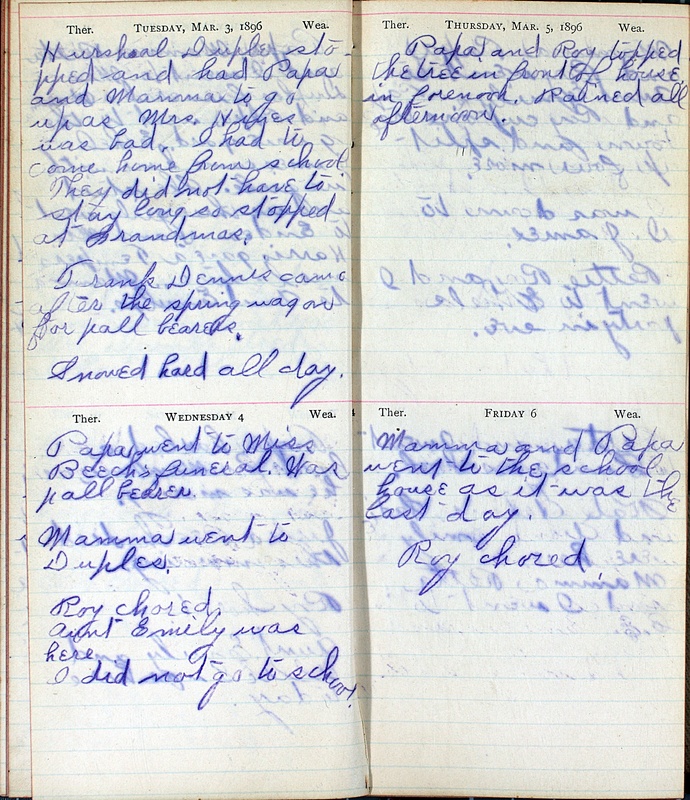 Ther. TUESDAY, MAR. 3, 1896 Wea.
Hurshal Duples sto-
pped and had Papa
and Mamma to go
up as Mrs. Hughes
was bad. I had to
come home from school
They did not have to
stay long so stopped
at Grandmas.
Frank Dennis came
after the spring wagon
for pall bearers.
Snowed hard all day.
Ther. WEDNESDAY 4 Wea.
Papa went to Miss
Beech's funeral. Was
pall bearer.
Mamma went to
Duples.
Roy chored.
Aunt Emily was
here
I did not go to school.
Ther. THURSDAY, MAR. 5, 1896 Wea.
Papa and Roy topped
the tree in front of house
in forenoon. Rained all
afternoon.
Ther. FRIDAY 6 Wea.
Mamma and Papa
went to the school
house as it was the
last day.
Roy chored